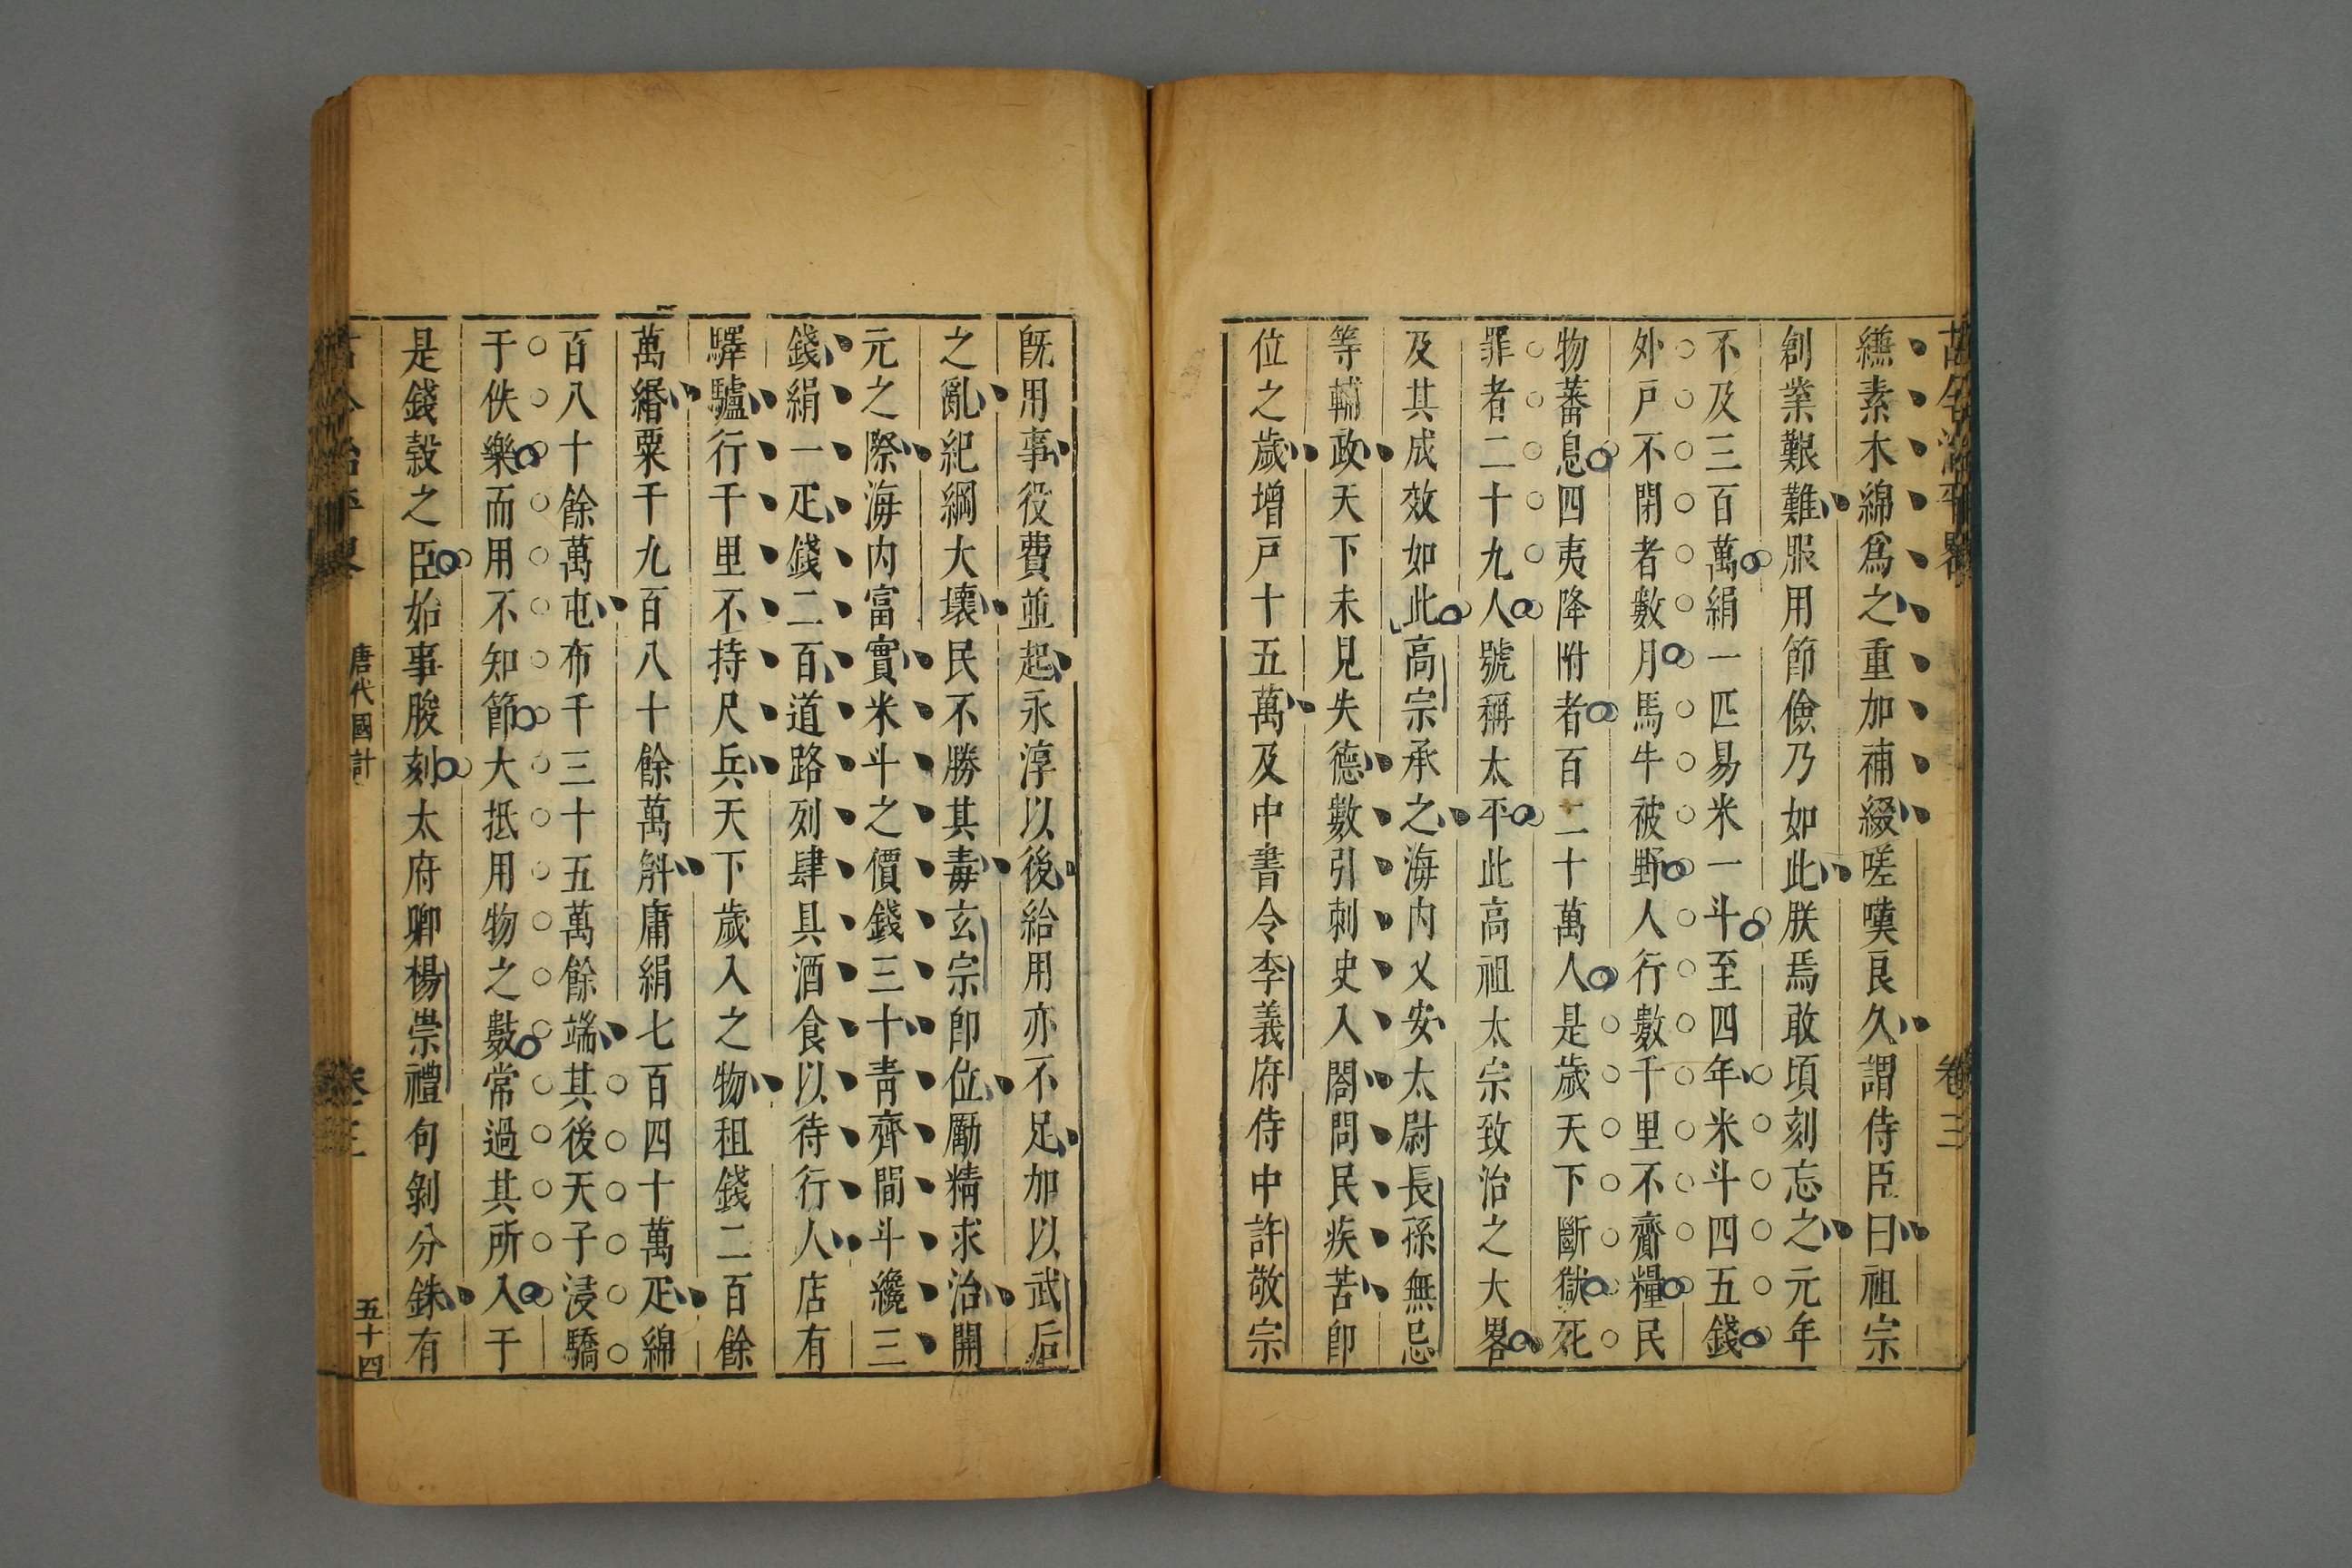 古今治平畧 卷三
纁素木綿爲之重加補綴嗟嘆良久謂侍臣曰祖宗
創業艱難服用節儉乃如此朕焉敢頃刻忘之元年
不及三百萬絹一匹易米一斗至四年米斗四五錢
外戸不閉者數月馬牛被野人行數千里不齎糧民
物蕃息四夷降附者百二十萬人是歲天下斷獄死
罪者二十九人號稱太平此高祖太宗致治之大畧
及其成效如此高宗承之海内乂安太尉長孫無忌
等輔政天下未見失德數引刺史入閤問民疾苦即
位之歲增戸十五萬及中書令李義府侍中許敬宗
旣用事役費並起永淳以後給用亦不足加以武后
之亂紀綱大壞民不勝其毒玄宗即位勵精求治開
元之際海内富實米斗之價錢三十靑齊間斗纔三
錢絹一疋錢二百道路列肆具酒食以待行人店有
驛驢行千里不持尺兵天下歲入之物租錢二百餘
萬緡粟千九百八十餘萬斛庸絹七百四十萬疋綿
百八十餘萬屯布千三十五萬餘端其後天子浸驕
于佚樂而用不知節大抵用物之數常過其所入于
是錢穀之臣始事朘刻太府卿楊崇禮句剝分銖有
唐代國計 卷三 五十四